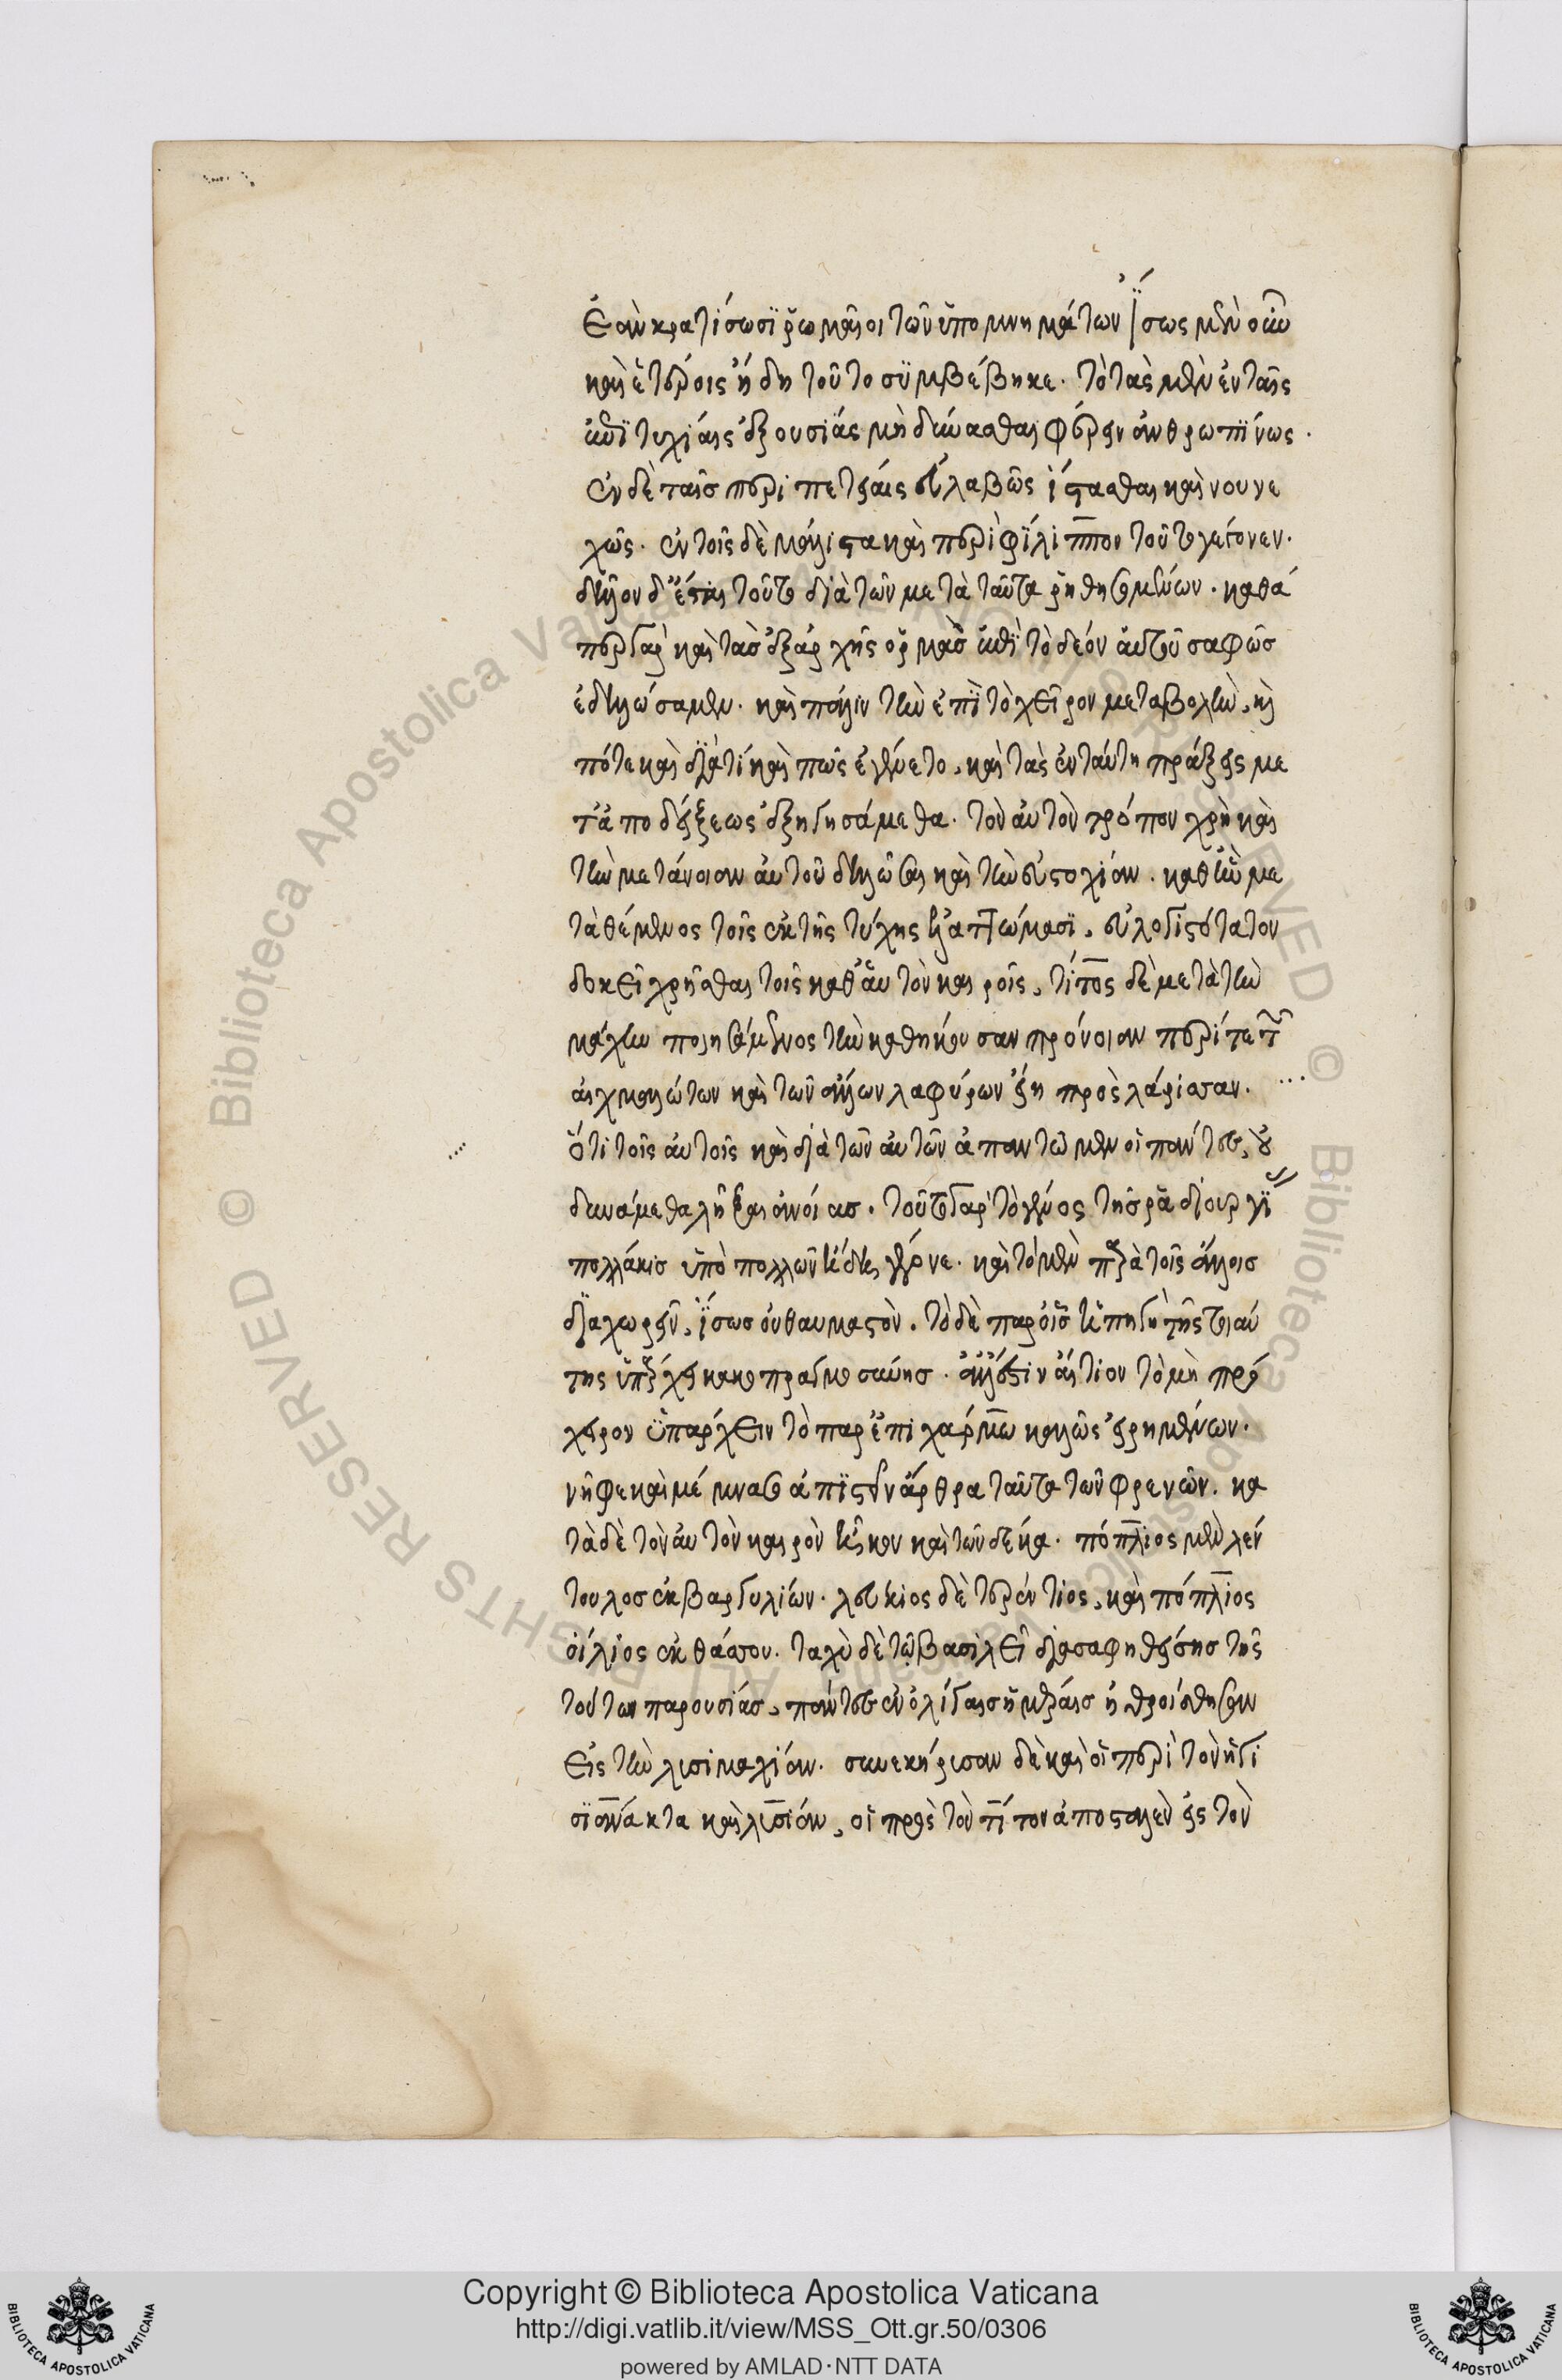 Ἐὰν κρατήσωσϊ ῥωμαῖοι τῶν ὑπομνημάτων Ἴσως μὲν οὖν
καὶ ἑτέροις ἤδη τοῦτο συμβέβηκε. τὸ τὰς μὲν ἐν ταῖς
ἐπιτυχίαις ἐξουσίας μὴ δύνασθαι φέρειν ἀνθρωπίνως.
ἐν δὲ ταῖσ περιπετείαις εὐλαβῶς ἵστασθαι καὶ νουνε
χῶς. ἐν τοῖς δὲ μάλιστα καὶ περὶ φίλιππον τοῦτο γέγονεν.
δῆλον δ' ἔσται τοῦτο διὰ τῶν μετὰ ταῦτα ῥηθησομένων. καθά
περ γὰρ καὶ τὰσ ἐξαρχῆς ὁρμὰσ ἐπὶ τὸ δέον αὐτοῦ σαφῶσ
ἐδηλώσαμεν. καὶ πάλιν τὴν ἐπὶ τὸ χεῖρον μεταβολὴν, καὶ
πότε καὶ διὰ τί καὶ πῶς ἐγένετο, καὶ τὰς ἐν ταύτη πράξεις με
τ' ἀποδείξεως ἐξηγησάμεθα. τὸν αὐτὸν τρόπον χρὴ καὶ
τὴν μετάνοιαν αὐτοῦ δηλῶσαι καὶ τὴν εὐστοχίαν. καθ' ἣν με
ταθέμενος τοῖς ἐκ τῆς τύχης ἐλαττώμασϊ, εὐλογιστότατον
δοκεῖ χρῆσθαι τοῖς καθ' αὑτὸν καιροῖς, τίτος δὲ μετὰ τὴν
μάχην ποιησάμενος τὴν καθήκουσαν πρόνοιαν περί τε τῶν
αἰχμαλώτων καὶ τῶν ἄλλων λαφύρων ἤει πρὸς λάρισσαν.
ὅτι τοῖς αὐτοῖς καὶ διὰ τῶν αὐτῶν ἀπαντῶμεν οἱ πάντες, οὐ
δυνάμεθα λῆξαι ἀνοίασ. τοῦτο γὰρ τὸ γένος τῆσ ῥαδιουργί
πολλάκισ ὑπὸ πολλῶν ἤδη γέγονε. καὶ τὸ μὲν παρὰ τοῖς ἄλλοισ
διαχωρεῖν, ἴσωσ οὐ θαυμαστὸν. τὸ δὲ παρ' οἷσ ἡ πηγὴ τῆς τοιαύ
της ὑπάρχει κακοπραγμοσύνησ. ἀλλ' ἔστιν αἴτιον τὸ μὴ πρό
χειρον ὑπάρχειν τὸ παρ' ἐπιχάρμω καλῶς εἰρημένων.
νῆφε καὶ μέμνασο ἀπιστεῖν ἄρθρα ταῦτα τῶν φρενῶν. κα
τὰ δὲ τὸν αὐτὸν καιρὸν ἧκον καὶ τῶν δέκα. πόπλιος μὲν λέν
τουλοσ ἐκ βαργυλίων. λεύκιος δὲ τερέντιος, καὶ πόπλιος
οίλιος ἐκ θάσσου. ταχὺ δὲ τῷ βασιλεῖ διασαφηθείσησ τῆς
τούτων παρουσίασ, πάντες ἐν ὀλίγαισ ἡμέραισ ἡθροίσθησαν
εἰς τὴν λισιμαχίαν. συνεκύρισαν δὲ καὶ οἱ περὶ τὸν ἡγι
σϊάνακτα καὶ λισίαν, οἱ πρὸς τὸν τίτον ἀποσταλέντες εἰς τὸν
Copyright © Biblioteca Apostolica Vaticana
http://digi.vatlib.it/view/MSS_Ott.gr.50/0306
powered by AMLAD·NTT DATA